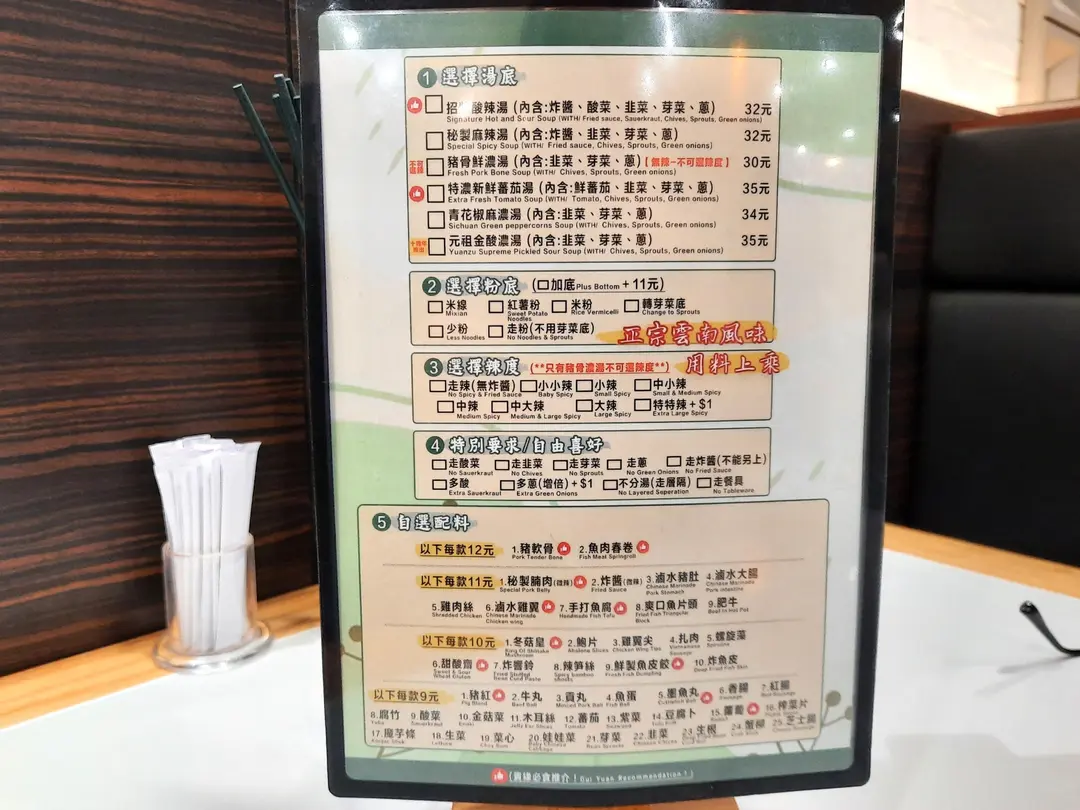 1 選擇湯底
招 酸辣湯 (內含:炸醬、酸菜、韭菜、芽菜、蔥) 32元
Signature Hot and Sour Soup (WITH/ Fried sauce, Sauerkraut, Chives, Sprouts, Green onions)
秘製麻辣湯 (內含:炸醬、韭菜、芽菜、蔥) 32元
Special Spicy Soup (WITH/ Fried sauce, Chives, Sprouts, Green onions)
不可選辣 豬骨鮮濃湯 (內含:韭菜、芽菜、蔥)【無辣-不可選辣度】 30元
Fresh Pork Bone Soup (WITH/ Chives, Sprouts, Green onions)
特濃新鮮蕃茄湯 (內含:鮮蕃茄、韭菜、芽菜、蔥) 35元
Extra Fresh Tomato Soup (WITH/ Tomato, Chives, Sprouts, Green onions)
青花椒麻濃湯 (內含:韭菜、芽菜、蔥) 34元
Sichuan Green peppercorns Soup (WITH/ Chives, Sprouts, Green onions)
元祖金酸濃湯 (內含:韭菜、芽菜、蔥) 35元
Yuanzu Supreme Pickled Sour Soup (WITH/ Chives, Sprouts, Green onions)
2 選擇粉底 (口加底Plus Bottom + 11元)
米線 紅薯粉 米粉 轉芽菜底
Mixian Sweet Potato Noodles Rice Vermicelli Change to Sprouts
少粉 走粉(不用芽菜底)
Less Noodles No Noodles & Sprouts
正宗雲南風味
用料上乘
3 選擇辣度 (**只有豬骨濃湯不可選辣度**)
走辣(無炸醬) 小小辣 小辣 中小辣
No Spicy & Fried Sauce Baby Spicy Small Spicy Small & Medium Spicy
中辣 中大辣 大辣 特特辣+$1
Medium Spicy Medium & Large Spicy Large Spicy Extra Large Spicy
4 特別要求/自由喜好
走酸菜 走韭菜 走芽菜 走蔥 走炸醬(不能另上)
No Sauerkraut No Chives No Sprouts No Green Onions No Fried Sauce
多酸 多蔥(增倍)+$1 不分湯(走層隔) 走餐具
Extra Sauerkraut Extra Green Onions No Layered Seperation No Tableware
5 自選配料
以下每款12元 1.豬軟骨 2.魚肉春卷
Pork Tender Bone Fish Meat Springroll
以下每款11元 1.秘製腩肉(微辣) 2.炸醬(微辣) 3.滷水豬肚 4.滷水大腸
Special Pork Belly Fried Sauce Chinese Marinade Pork Stomach Chinese Marinade Pork Intestine
5.雞肉絲 6.滷水雞翼 7.手打魚腐 8.爽口魚片頭 9.肥牛
Shredded Chicken Chinese Marinade Chicken wing Handmade Fish Tofu
以下每款10元 1.冬菇皇 2.鮑片 3.雞翼尖 4.扎肉 5.螺旋藻
King Of Shiitake Mushroom Abalone Slices Chicken Wing Tips Vietnamese Sausage
6.甜酸齋 7.炸響鈴 8.辣笋絲 9.鮮製魚皮餃 10.炸魚皮
Sweet & Sour Wheat Gluten Spicy bamboo shoots Fresh Fish Dumpling Deep Fried Fish Skin
以下每款9元 1.豬紅 2.牛丸 3.貢丸 4.魚蛋 5.墨魚丸 6.香腸 7.紅腸
Pig Blood Beef Ball Minced Pork Ball Fish Ball Cuttlefish Ball Sausage Red Sausage
8.腐竹 9.酸菜 10.金菇菜 11.木耳絲 12.蕃茄 13.紫菜 14.豆腐卜 15.蘿蔔 16.榨菜片
Yuba Sauerkraut Enoki Tomato Seaweed
17.魔芋條 18.生菜 19.菜心 20.娃娃菜 21.芽菜 22.韭菜 23.生根 24.蟹柳 25.芝士腸
Lettuce Choy Sum Baby Chinese Cabbage Crab Stick